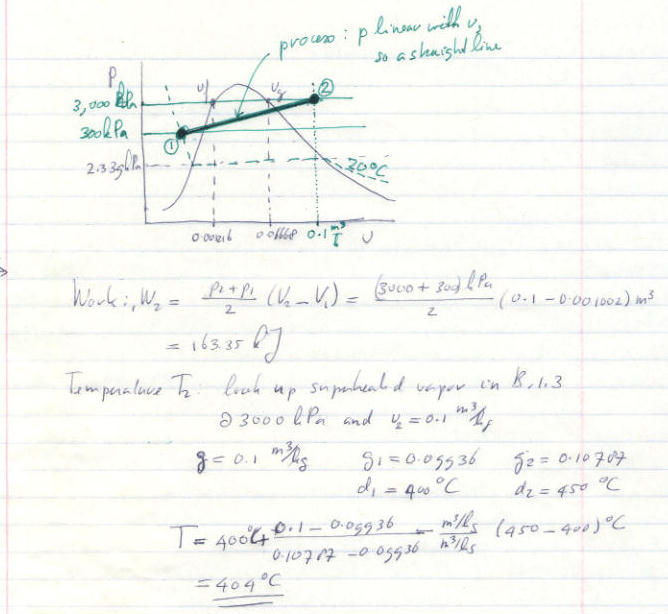 process : p linear with v,
so a straight line
P
②
3,000 kPa
vf
vg
300kPa
①
2.339kPa
20°C
0.001216 0.06668 0.1 m³ v
Work: ₁W₂ = p₂+p₁ / 2 (V₂ - V₁) = (3000 + 300) kPa / 2 (0.1 - 0.001002) m³
= 163.35 kJ
Temperature T₂: look up superheated vapor in B.1.3
@ 3000 kPa and v₂ = 0.1 m³/kg
g = 0.1 m³/kg g₁ = 0.09936 g₂ = 0.10787
d₁ = 400 °C d₂ = 450 °C
T = 400°C + 0.1 - 0.09936 / 0.10787 - 0.09936 m³/kg / m³/kg (450 - 400)°C
= 404°C